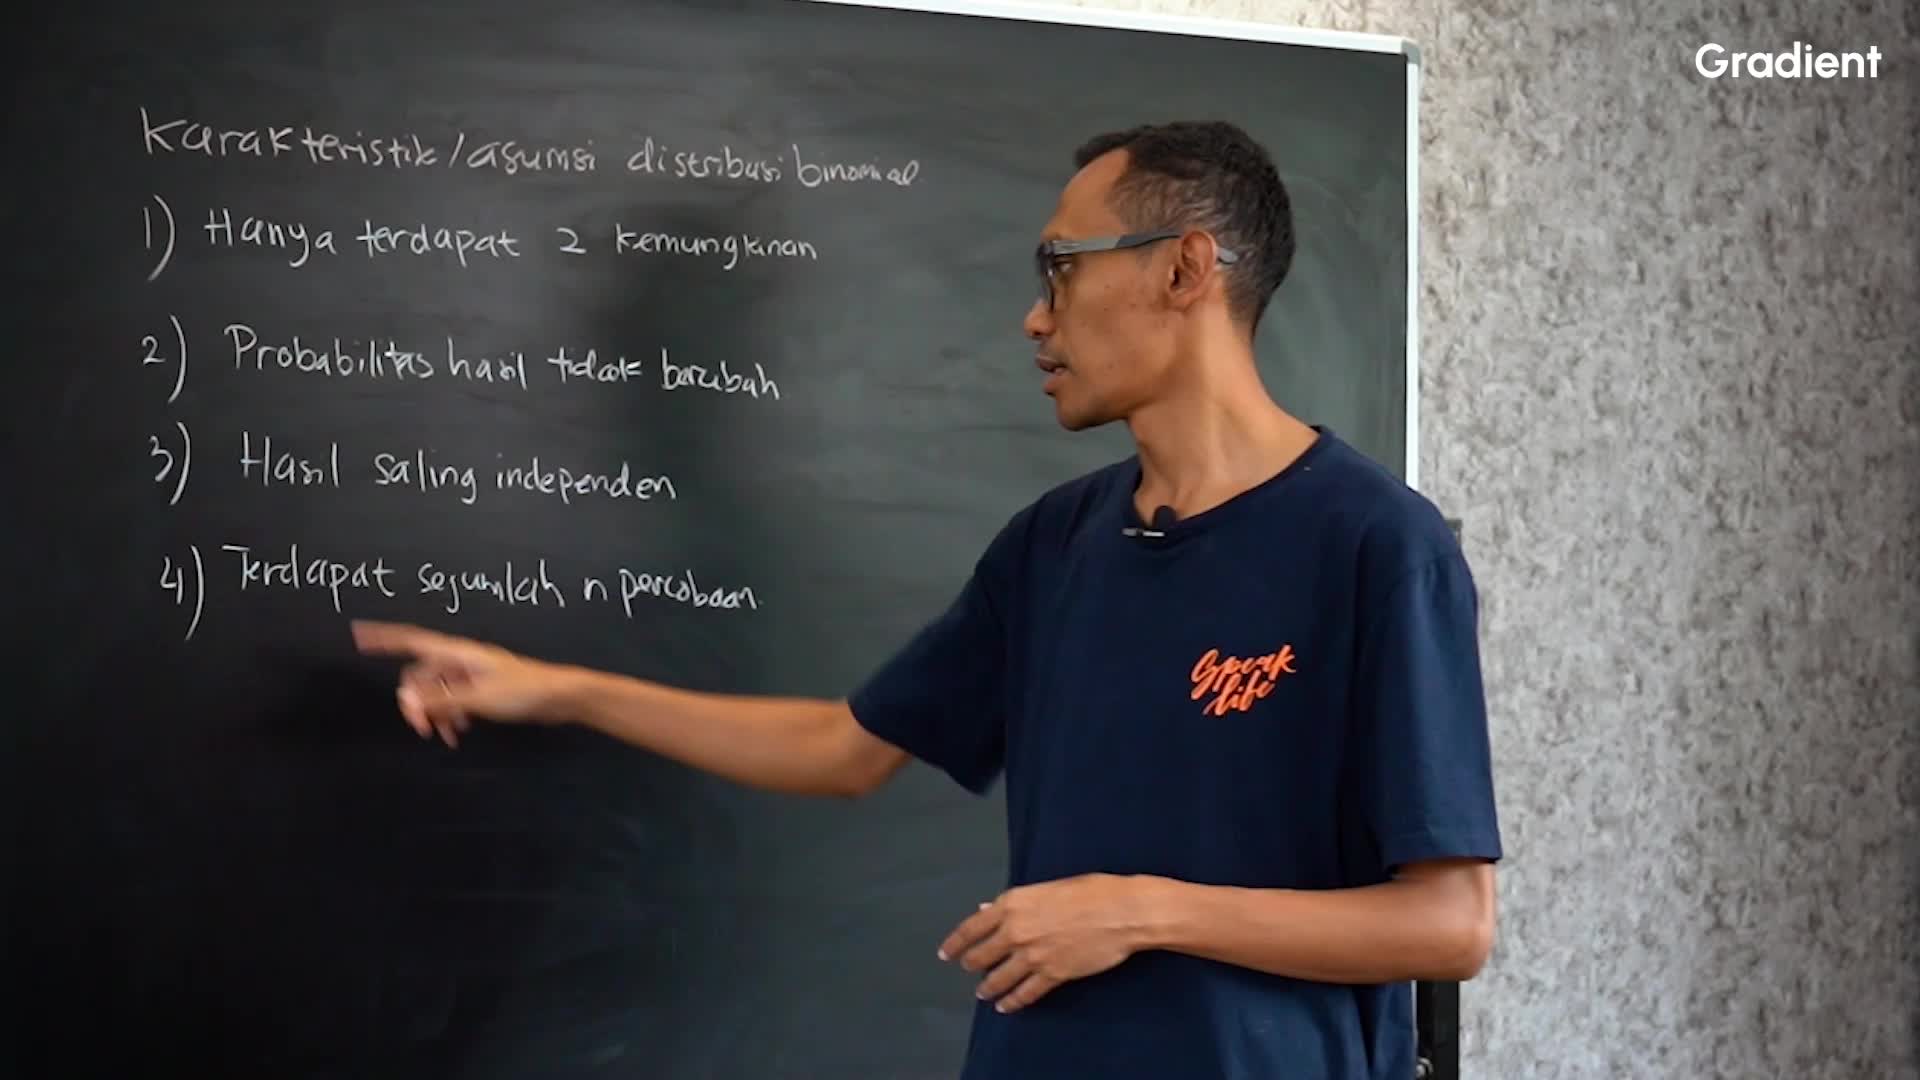 Gradient
Karakteristik/asumsi distribusi binomial
1) Hanya terdapat 2 kemungkinan
2) Probabilitas hasil tidak berubah
3) Hasil saling independen
4) Terdapat sejumlah n percobaan.
Speak
life